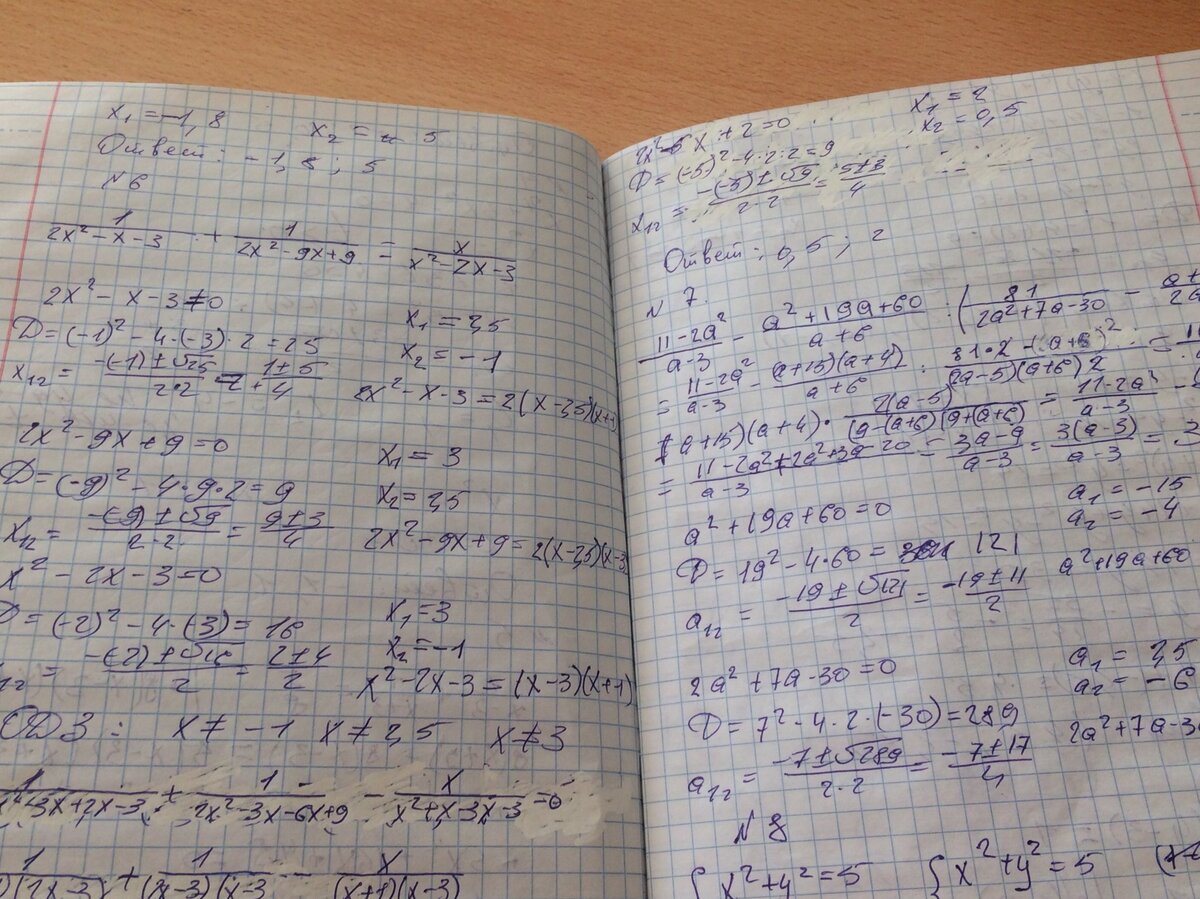 x₁ = -1,8
x₂ = 5
Ответ: -1,8; 5
N6
1/(2x²-x-3) + 1/(2x²-9x+9) = x/(x²-2x-3)
2x²-x-3≠0
D=(-1)²-4·(-3)·2=25
x₁ = 1,5
x₁₂ = (-(-1)±√25)/(2·2) = (1±5)/4
x₂ = -1
2x²-x-3=2(x-1,5)(x+1)
2x²-9x+9=0
x₁ = 3
D=(-9)²-4·9·2=9
x₂ = 1,5
x₁₂ = (-(-9)±√9)/(2·2) = (9±3)/4
2x²-9x+9=2(x-1,5)(x-3)
x²-2x-3=0
D=(-2)²-4·(-3)=16
x₁=3
x₂=-1
(-(-2)±√16)/2 = (2±4)/2
x²-2x-3=(x-3)(x+1)
ОДЗ: x≠-1 x≠1,5 x≠3
1/(-3x+2x-3) + 1/(2x²-3x-6x+9) - x/(x²+x-3x-3) = 0
1/(2x-3) + 1/(x-3) - x/((x+1)(x-3))
x₁ = 2
2x²-5x+2=0
x₂ = 0,5
D=(-5)²-4·2·2=9
x₁₂ = (-(-5)±√9)/(2·2) = (5±3)/4
Ответ: 0,5; 2
N 7.
(11-2a²)/(a-3) - (a²+19a+60)/(a+6) : (81/(2a²+7a-30) -
= (11-2a²)/(a-3) - ((a+15)(a+4))/(a+6) :
(a+15)(a+4) · = (11-2a²)/(a-3) -
= (11-2a²+2a²+3a-20)/(a-3) = (3a-9)/(a-3) = (3(a-3))/(a-3) = 3
a²+19a+60=0
a₁ = -15
a₂ = -4
D=19²-4·60= 121
a²+19a+60
a₁₂ = (-19±√121)/2 = (-19±11)/2
2a²+7a-30=0
a₁ = 2,5
a₂ = -6
D=7²-4·2·(-30)=289
2a²+7a-30
a₁₂ = (-7±√289)/(2·2) = (-7±17)/4
N 8
{x²+y²=5 {x²+y²=5